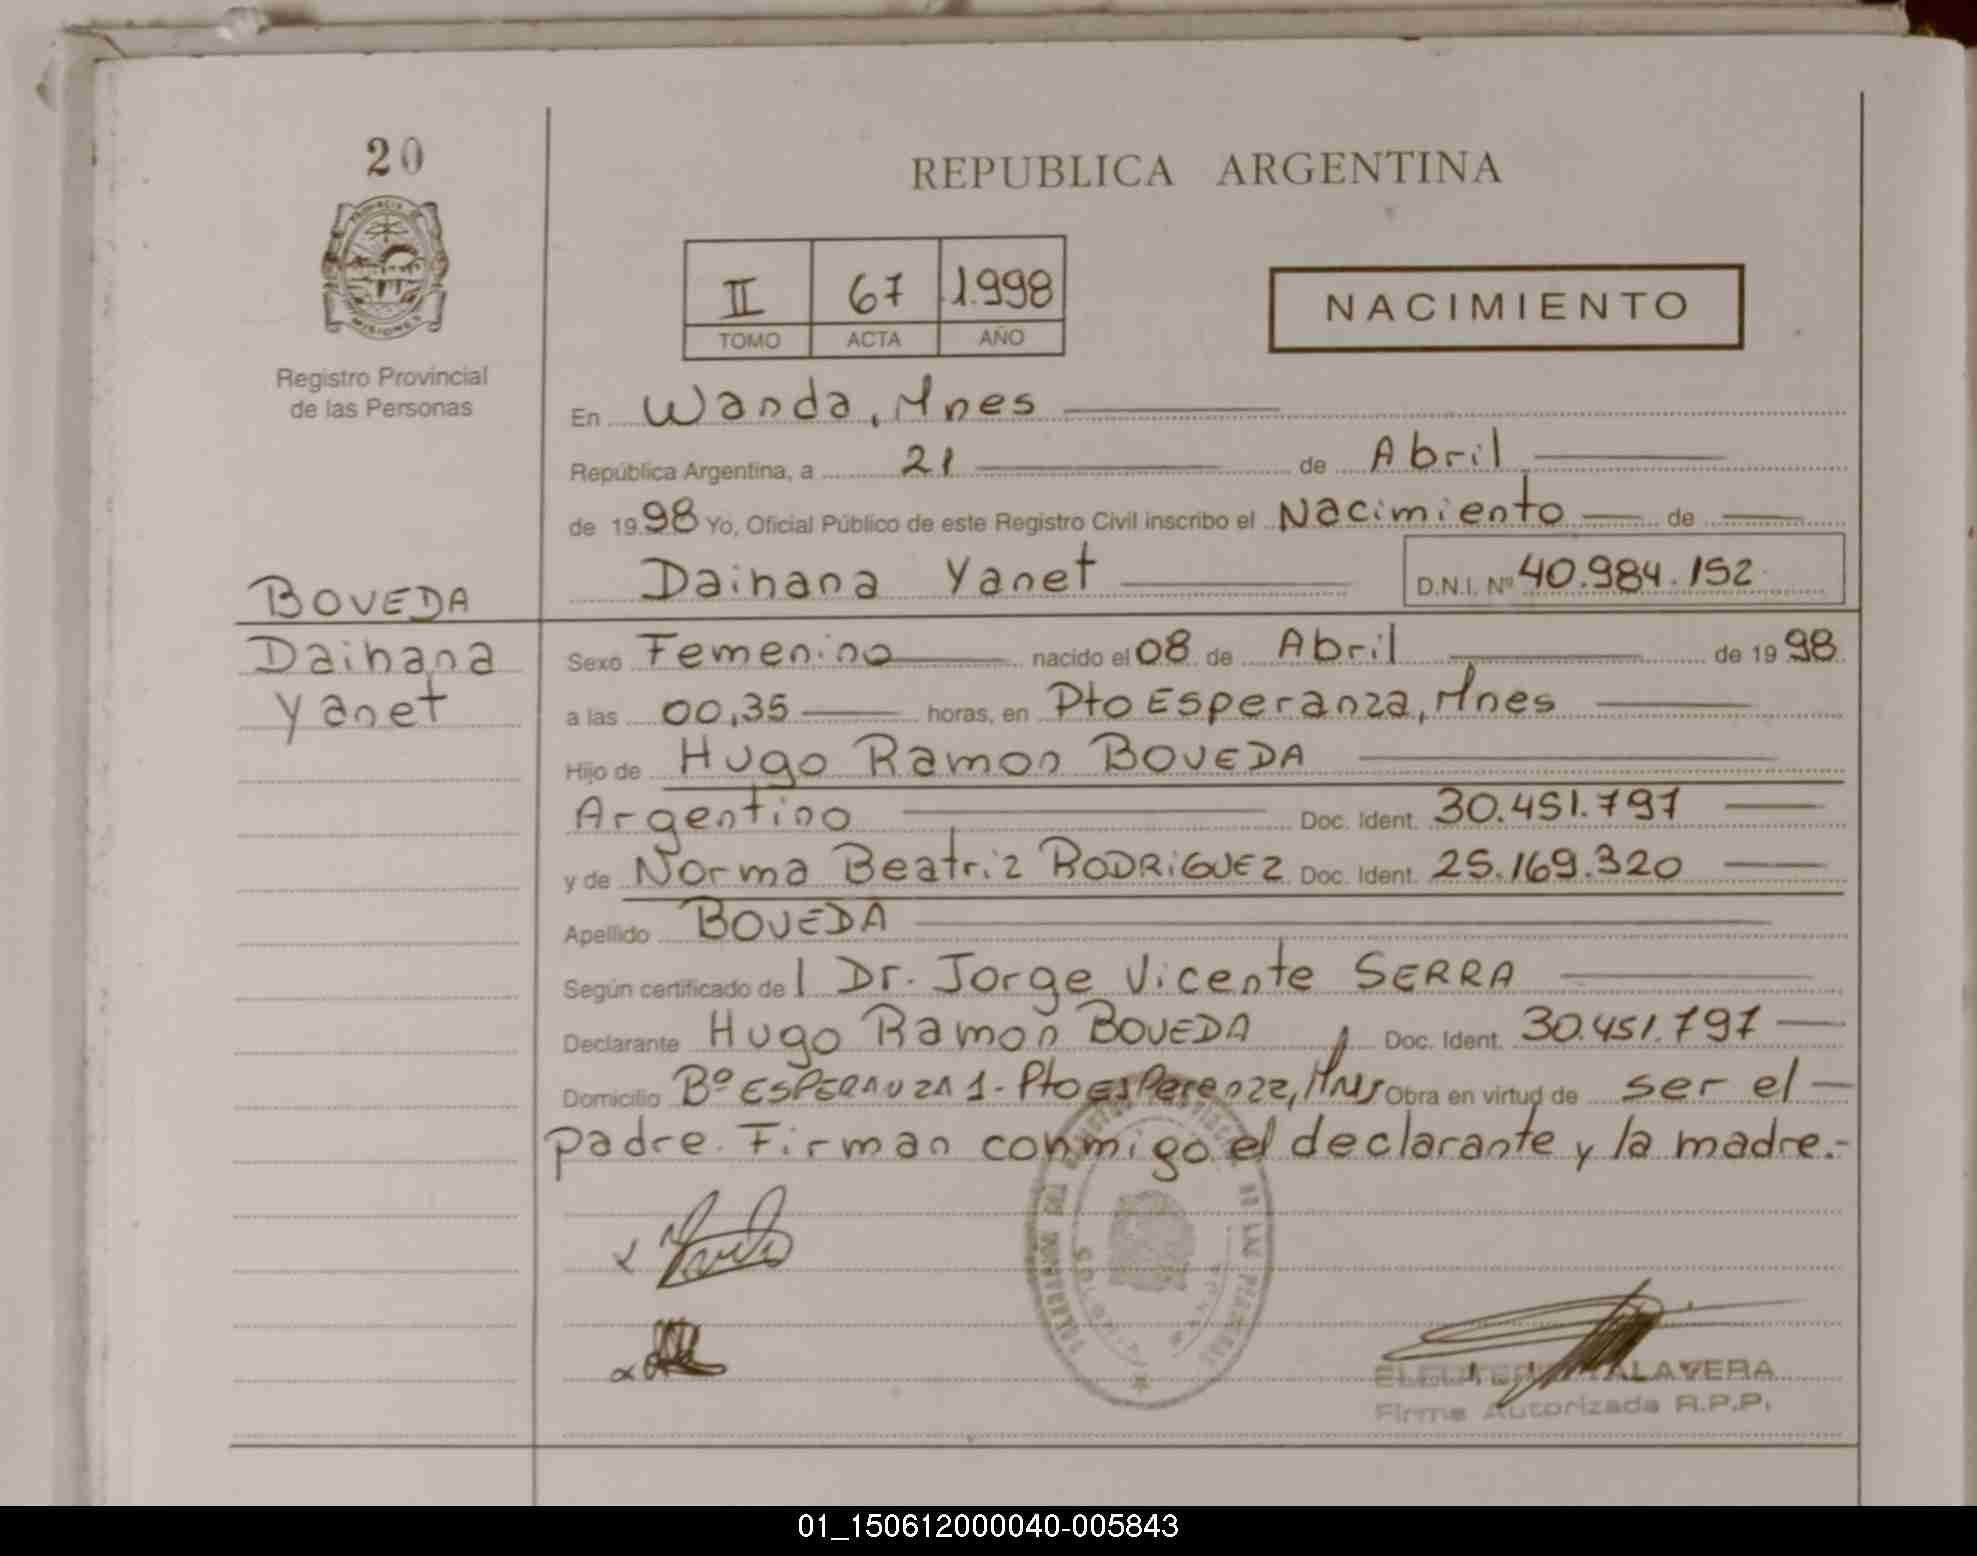 20
PROVINCIA DE
MISIONES
Registro Provincial
de las Personas
REPUBLICA ARGENTINA
II 67 1.998
TOMO ACTA AÑO
NACIMIENTO
En Wanda, Mnes
República Argentina, a 21 de Abril
de 1998 Yo, Oficial Público de este Registro Civil inscribo el Nacimiento de
Daihana Yanet D.N.I. Nº 40.984.152
BOVEDA
Daihana
Yanet
Sexo Femenino nacido el 08 de Abril de 1998
a las 00,35 horas, en Pto Esperanza, Mnes
Hijo de Hugo Ramon BOVEDA
Argentino Doc. Ident. 30.451.797
y de Norma Beatriz RODRIGUEZ Doc. Ident. 25.169.320
Apellido BOVEDA
Según certificado del Dr. Jorge Vicente SERRA
Declarante Hugo Ramon BOVEDA Doc. Ident. 30.451.797
Domicilio Bº ESPERANZA 1 - Pto Esperanza, Mnes Obra en virtud de ser el
padre. Firman conmigo el declarante y la madre.-
DE LAS PERSONAS
TALAVERA
Firma Autorizada R.P.P.
01_150612000040-005843